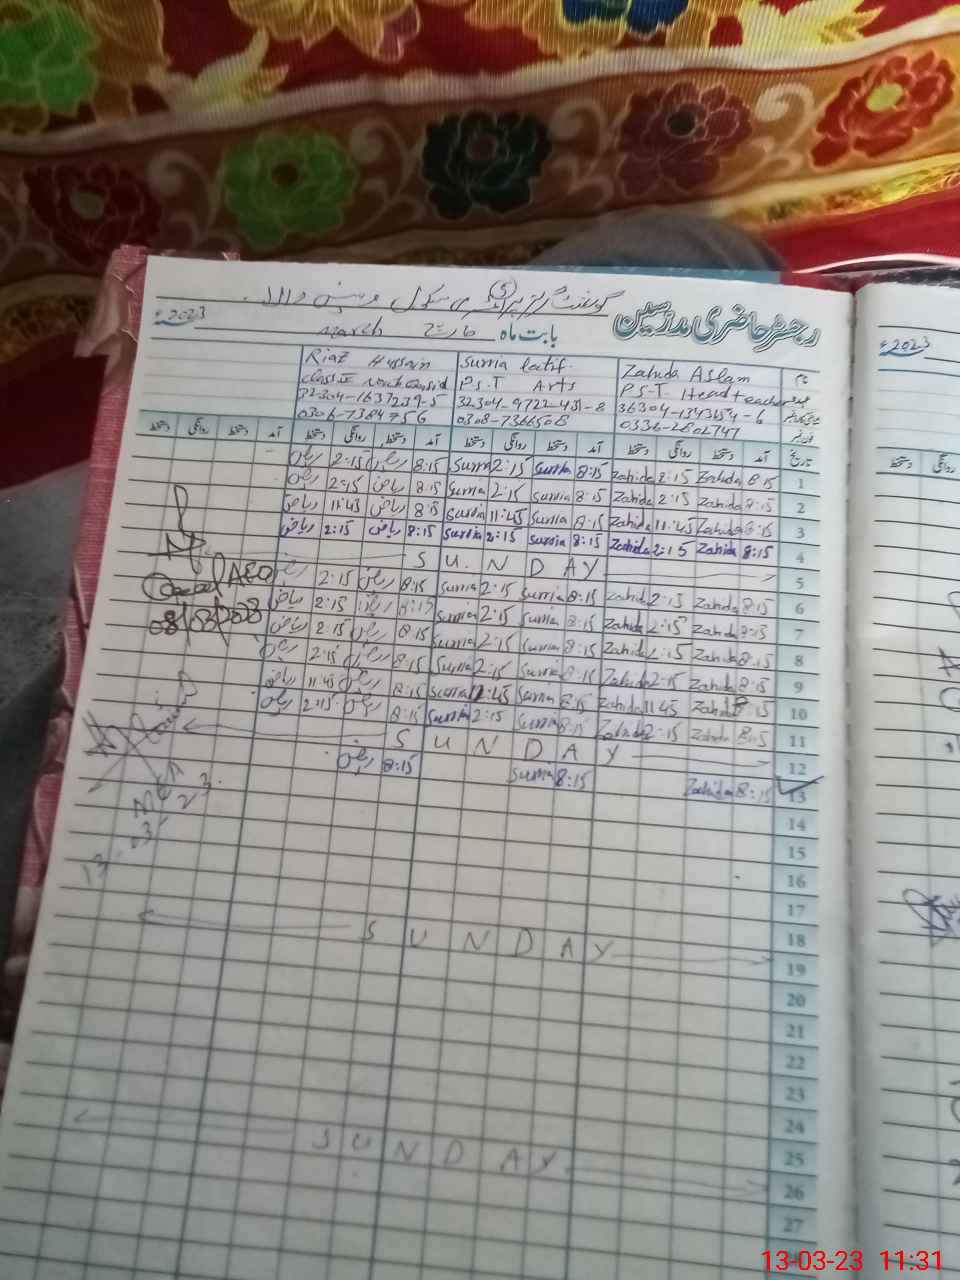 گورنمنٹ گرلز پرائمری سکول
رجسٹر حاضری مدرسین
بابت ماہ March 2023ء
2023ء
نام Zahida Aslam Surria Latif Riaz Hussain
عہدہ P.S.T Head teacher P.S.T Arts class IV
36304-1343654-6 32304-9722451-8 32304-1637239-5
فون نمبر 0336-2802747 0308-7366508 0306-7384756
تاریخ آمد دستخط روانگی دستخط آمد دستخط روانگی دستخط آمد دستخط روانگی دستخط آمد دستخط روانگی دستخط
روانگی دستخط
1 8:15 Zahida 2:15 Zahida 8:15 Surria 2:15 Surria 8:15 ریاض 2:15 ریاض
2 8:15 Zahida 2:15 Zahida 8:15 Surria 2:15 Surria 8:15 ریاض 2:15 ریاض
3 8:15 Zahida 11:45 Zahida 8:15 Surria 11:45 Surria 8:15 ریاض 11:45 ریاض
4 8:15 Zahida 2:15 Zahida 8:15 Surria 2:15 Surria 8:15 ریاض 2:15 ریاض
5 SUNDAY
6 8:15 Zahida 2:15 Zahida 8:15 Surria 2:15 Surria 8:15 ریاض 2:15 ریاض
7 8:15 Zahida 2:15 Zahida 8:15 Surria 2:15 Surria 8:15 ریاض 2:15 ریاض
8 8:15 Zahida 2:15 Zahida 8:15 Surria 2:15 Surria 8:15 ریاض 2:15 ریاض
9 8:15 Zahida 2:15 Zahida 8:15 Surria 2:15 Surria 8:15 ریاض 2:15 ریاض
10 8:15 Zahida 11:45 Zahida 8:15 Surria 11:45 Surria 8:15 ریاض 11:45 ریاض
11 8:15 Zahida 2:15 Zahida 8:15 Surria 2:15 Surria 8:15 ریاض 2:15 ریاض
12 SUNDAY
13 8:15 Zahida 8:15 Surria 8:15 ریاض
14
15
16
17
18
19 SUNDAY
20
21
22
23
24
25
26 SUNDAY
27
AEO
MEA
13.03.23
13-03-23 11:31